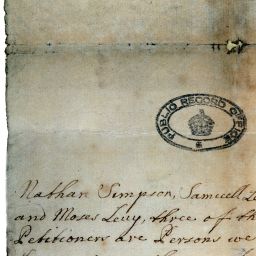 PUBLIC RECORD OFFICE
Nathan Simpson, Samuell
and Moses Levy, three of th
Petitioners are Persons we